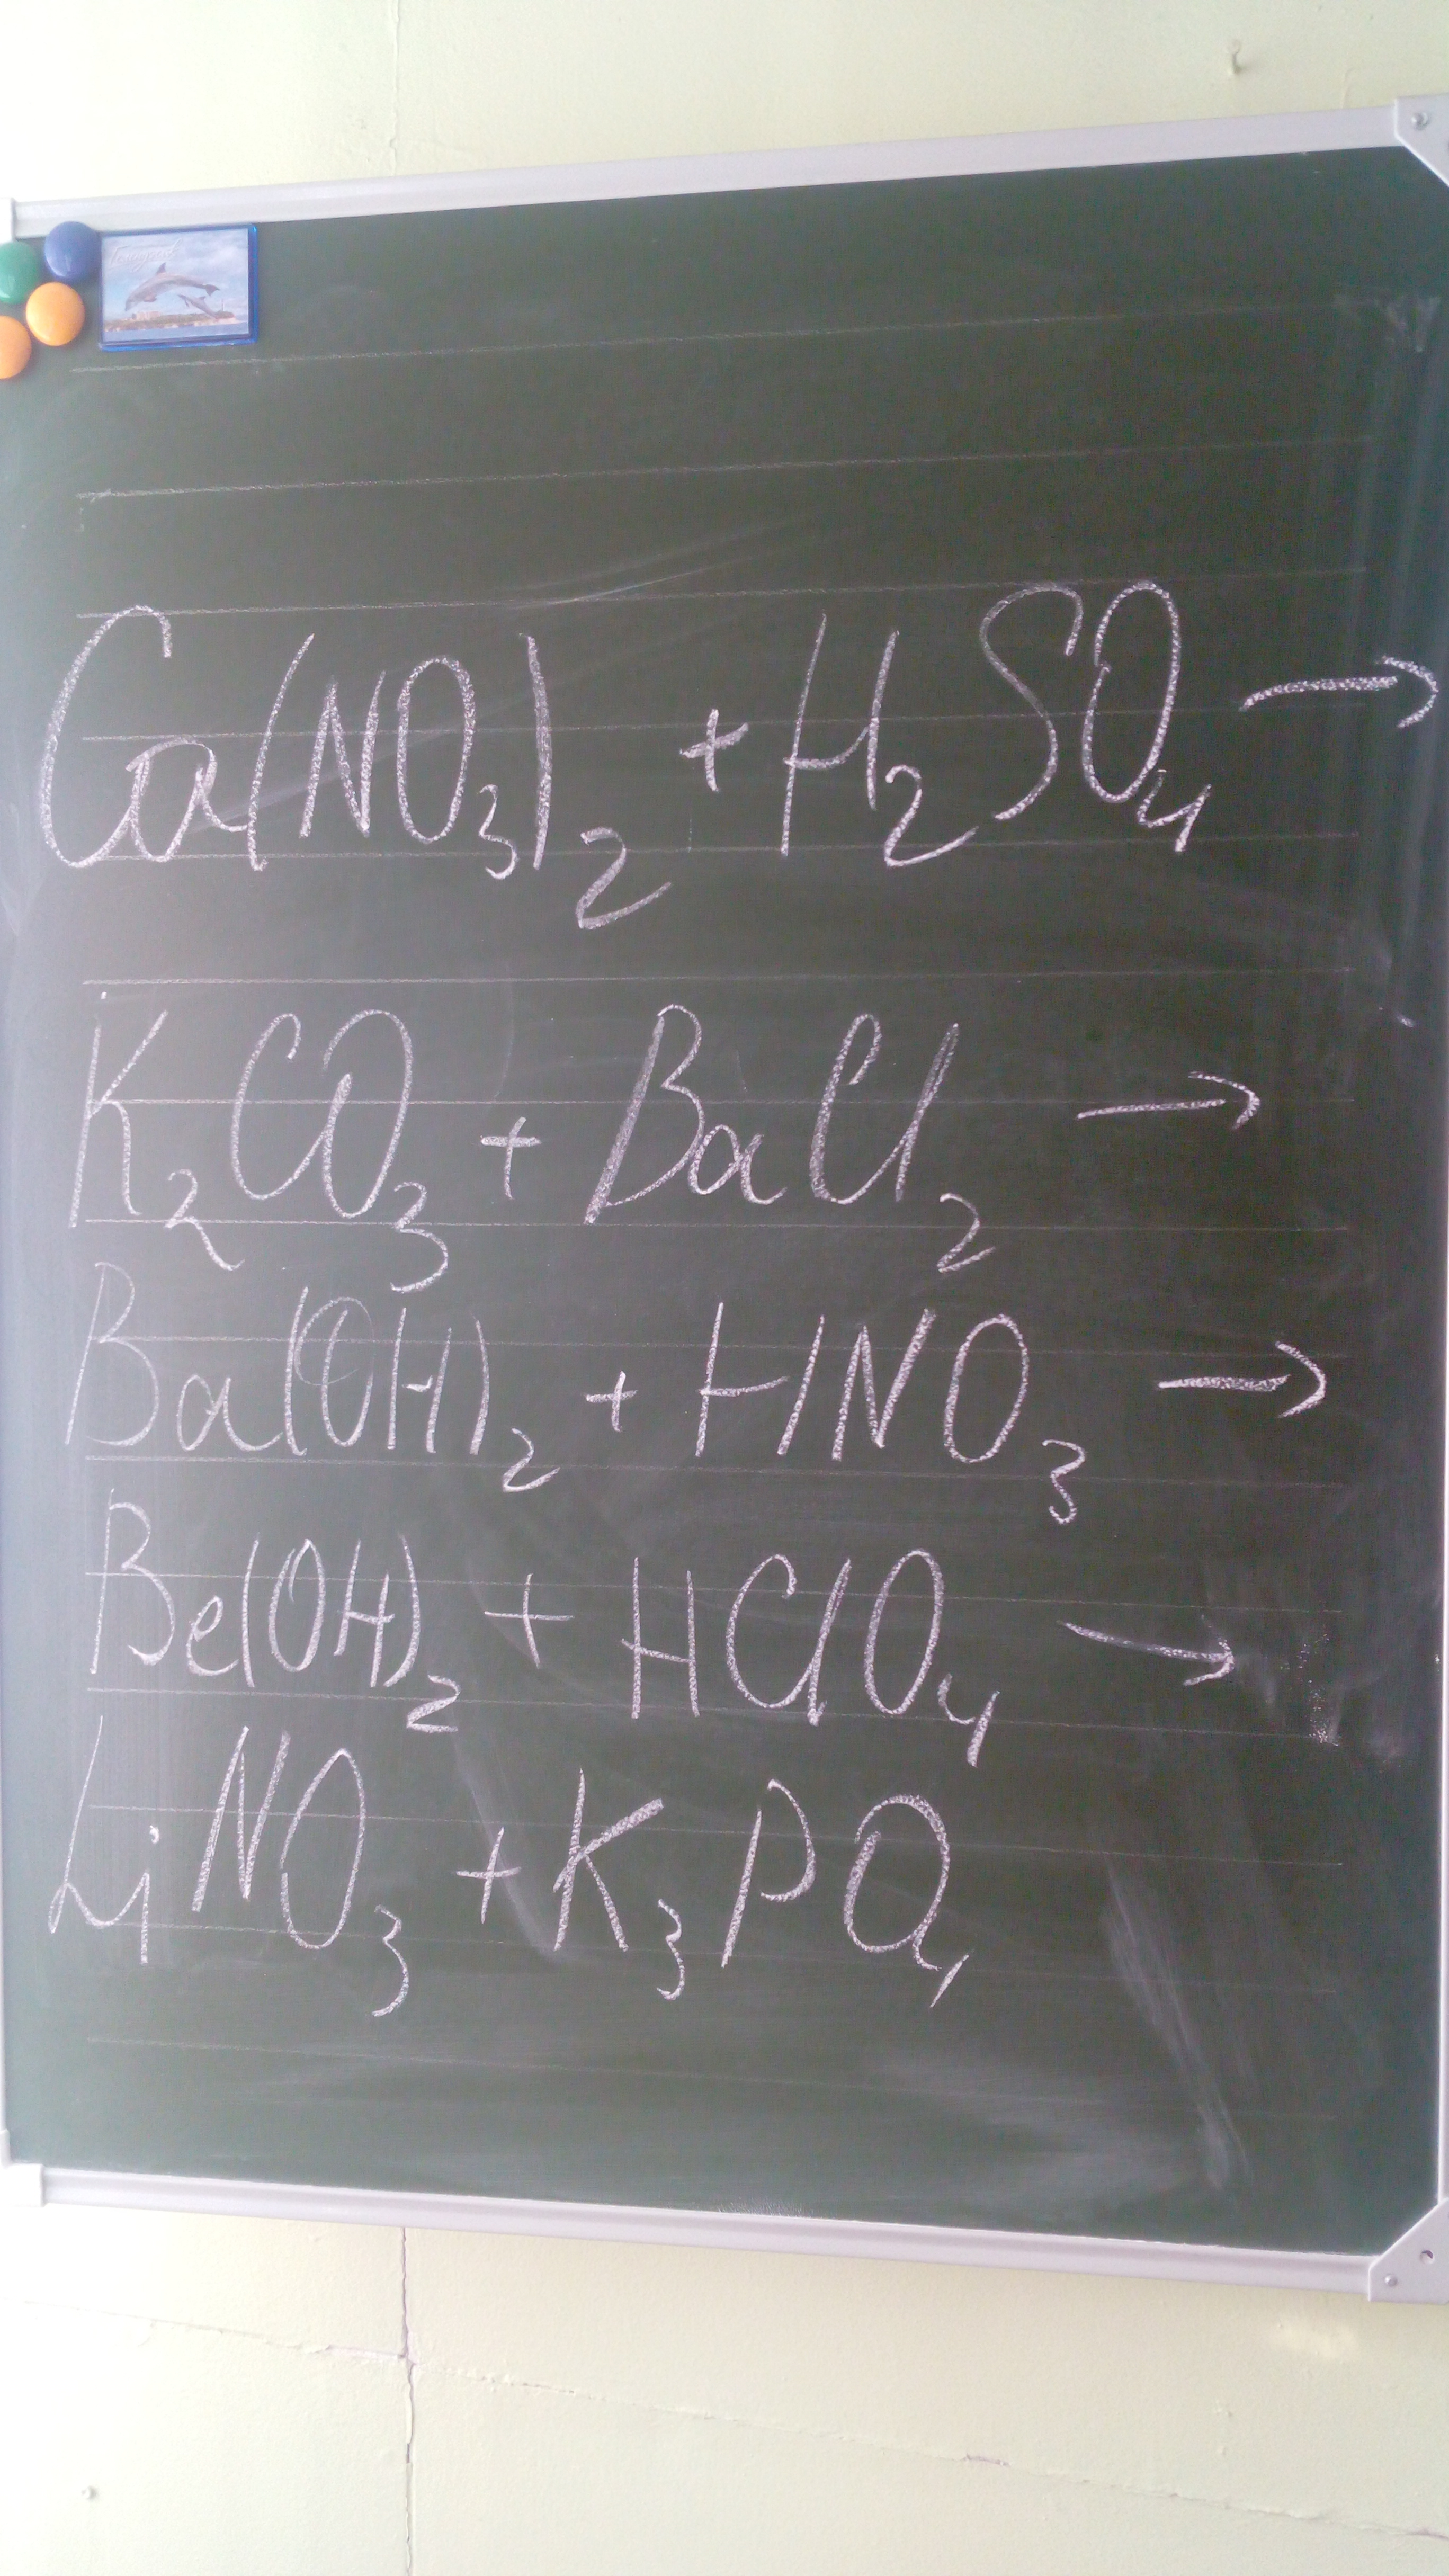 Ca(NO₃)₂ + H₂SO₄ →
K₂CO₃ + BaCl₂ →
Ba(OH)₂ + HNO₃ →
Be(OH)₂ + HClO₄ →
LiNO₃ + K₃PO₄